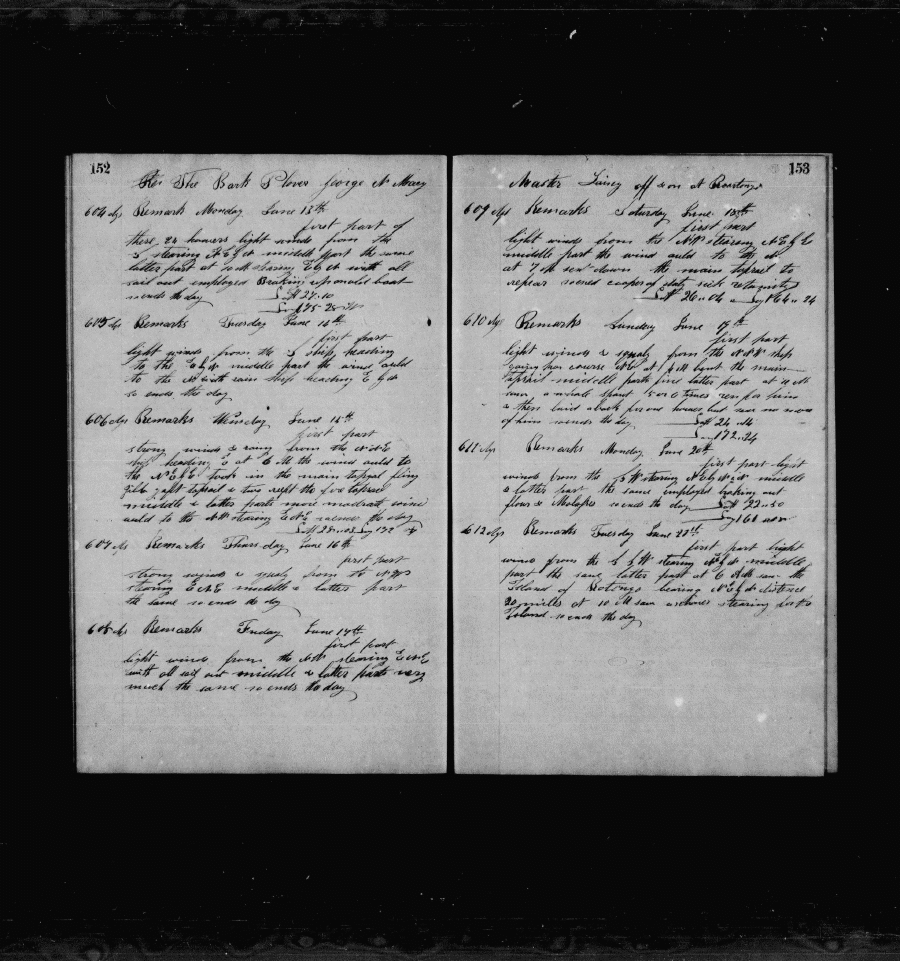 152
The Bark Plover George N Macy
604 dys Remarks Monday June 13th
first part of
these 24 houers light winds from the
S stearing N E by N middle part the same
latter part at stearing E by N with all
sail out employed Braking up old boat
so ends the day Latt 27..10
Long 175..28
605 dys Remarks Tuesday June 14th
first part
light winds from the S ship heading
to the E by N middle part the wind auld
to the N with rain ship heading E by N
so ends the day
606 dys Remarks June 15th
first part
strong winds & rainy from the N N E
ship heading E at 6 M the wind auld to
the N E by E took in the main topsail fling
jibb aft topsail & two reeft the fore topsail
middle & latter parts more madrate wind
auld to the NW stearing E N E so ends the day
Latt 28..03 Long 172
607 dys Remarks Thursday June 16th
first part
strong winds & squaly from to N W
stearing E N E middle & latter part
the same so ends the day
608 dys Remarks Friday June 17th
first part
light winds from the NW stearing E N E
with all sail out middle & latter parts very
much the same so ends the day
153
Master off & on at
609 dys Remarks Saturday June 18th
first part
light winds from the NW stearing N E by E
middle part the wind auld to the N
at 7 M sent down the main topsail to
repair
Latt 26..04 Long 164..24
610 dys Remarks Sunday June 19th
first part
light winds & squaly from the N N W ship
going her course N E at 1 M bent the main
topsail middle part fine latter part at 10 M
saw a whale spout 5 or 6 times ran for him
& then laid aback for one houer but saw no more
of him so ends the day Latt 24..
Long 172..34
611 dys Remarks Monday June 20th
first part light
winds from the S W stearing N E by N middle
& latter part the same employed braking out
flour & Molases so ends the day Latt 22..50
Long 161
612 dys Remarks Tuesday June 21st
first part light
winds from the S by W stearing N by middle
part the same latter part at 6 AM saw the
Island of Rotongo bearing N E by N distance
20 milles at 10 M saw a stearing for the
Island so ends the day